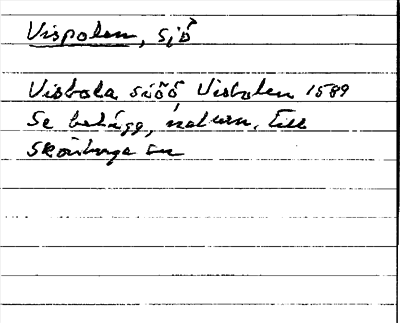 Vispolen, sjö
Visbola siöö Visbolen 1589
Se belägg, naturn. till
Skön